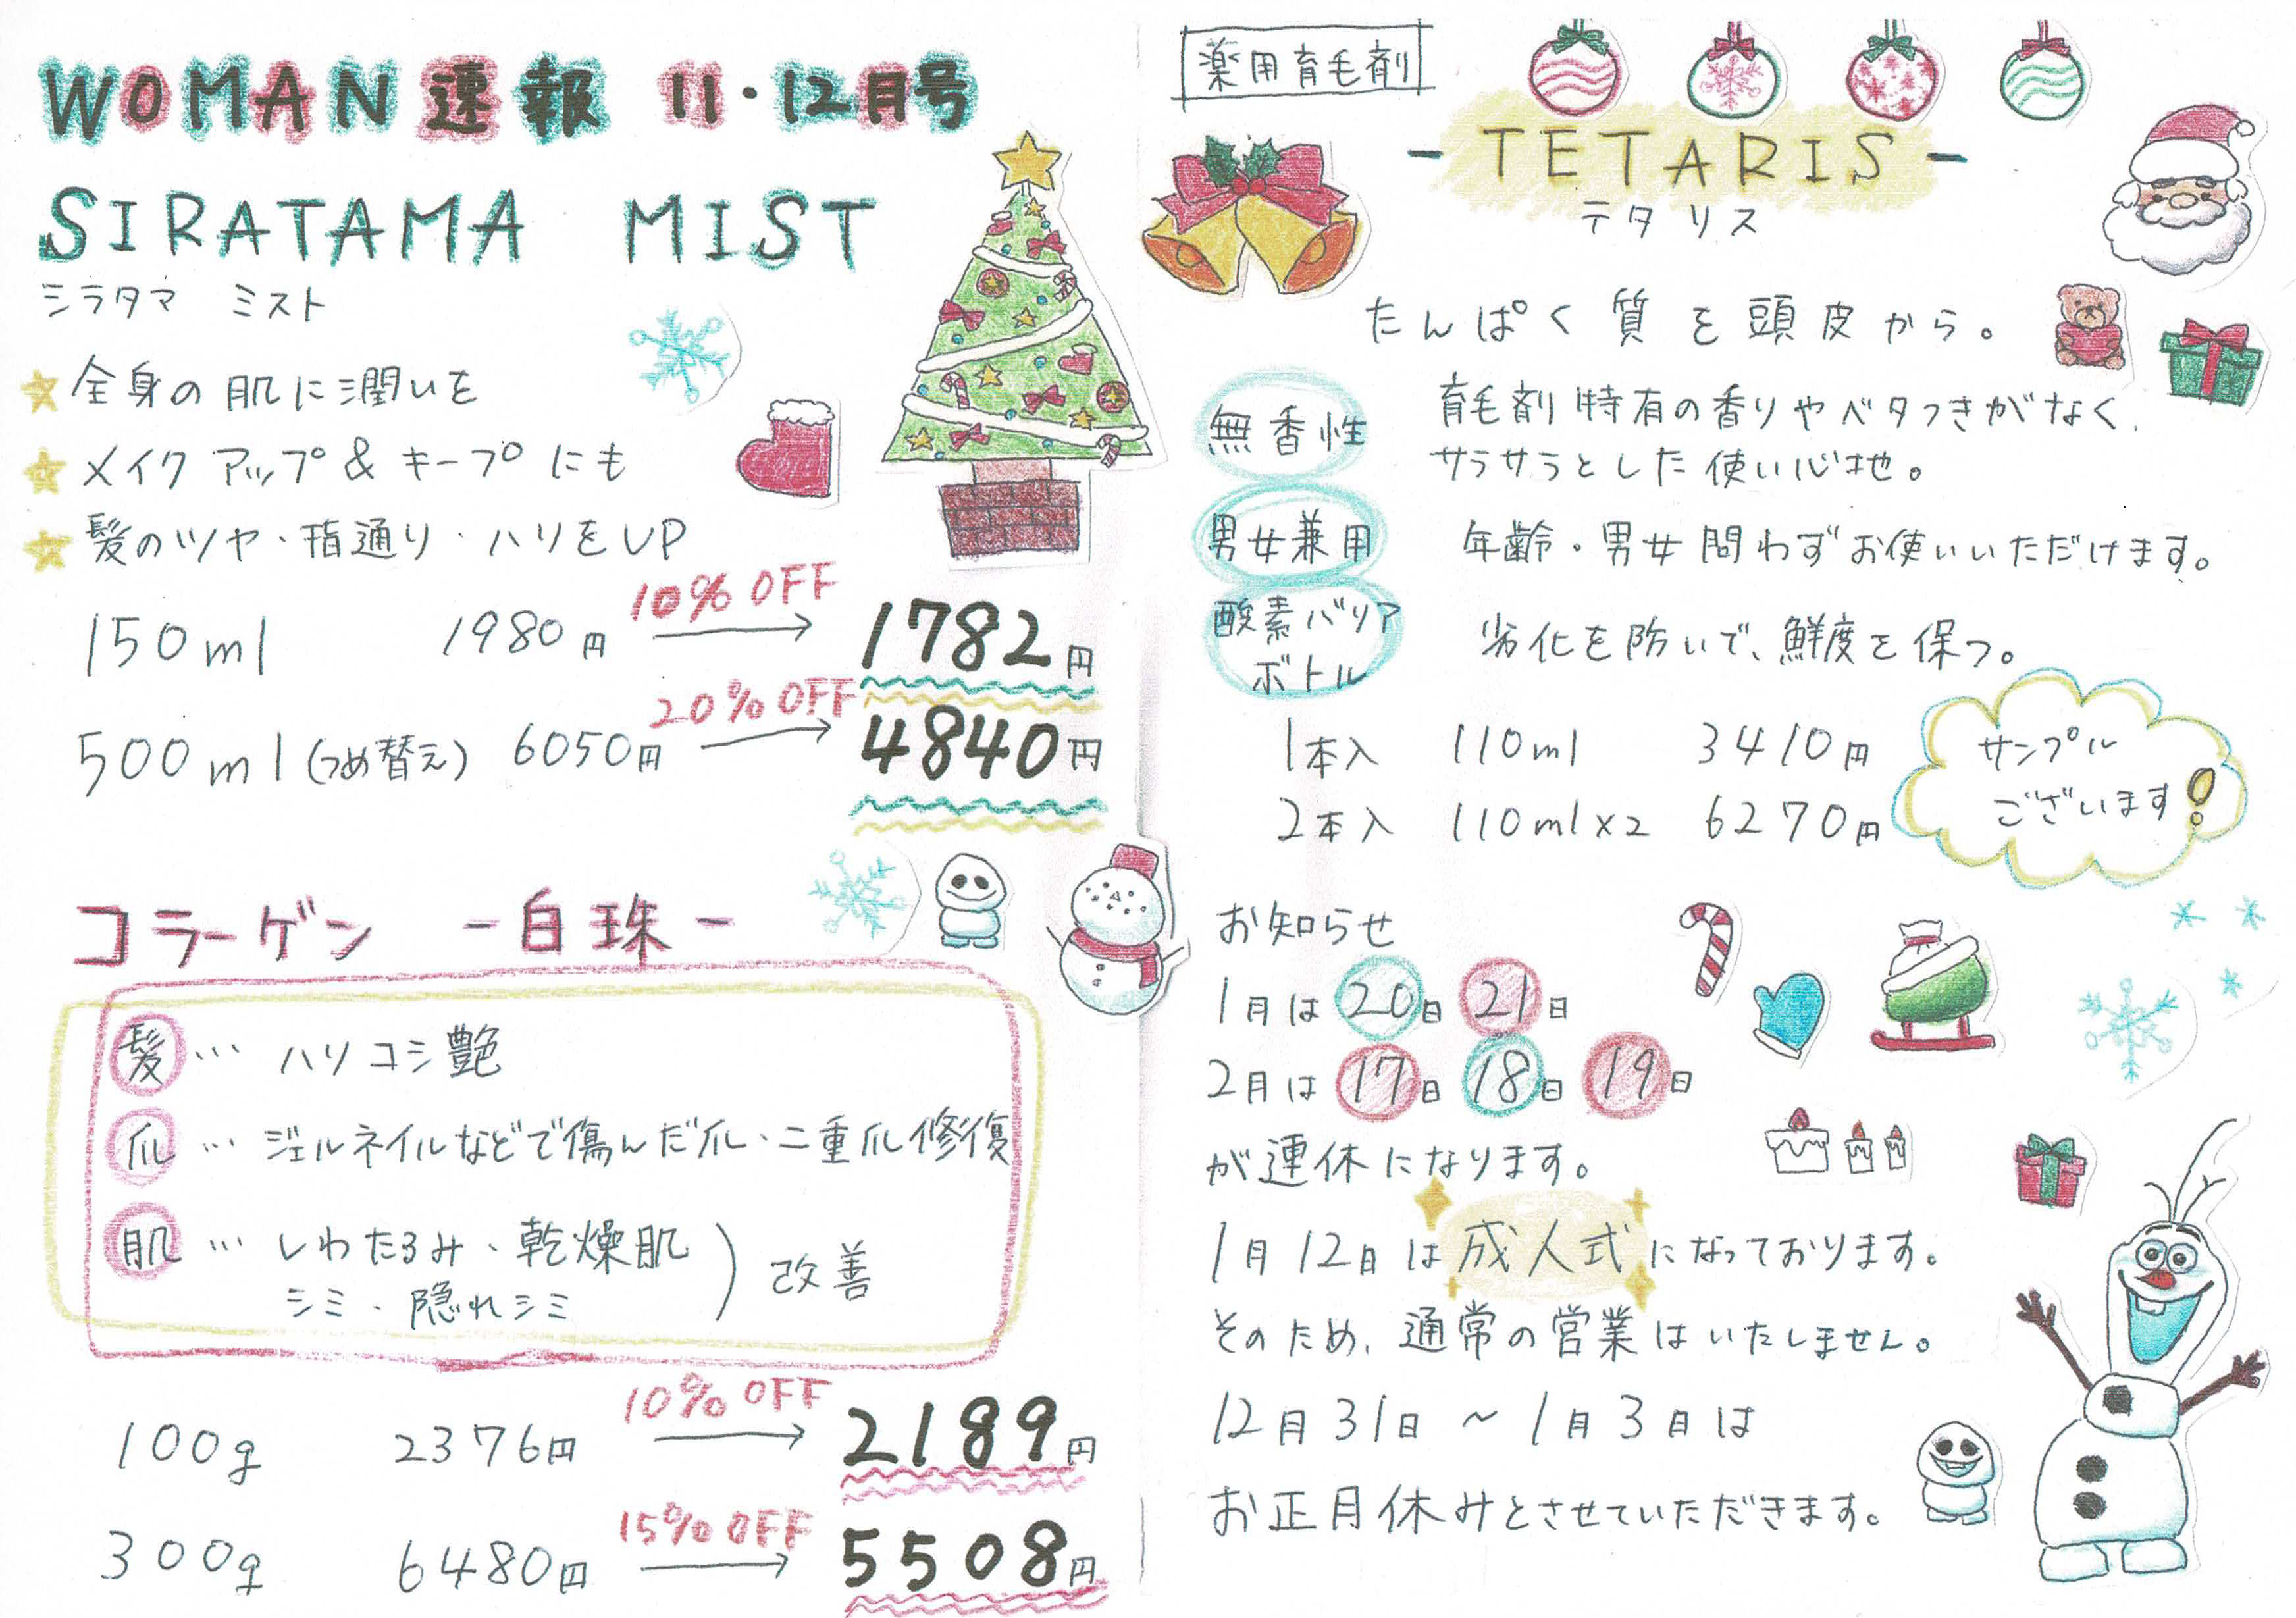 WOMAN速報 11・12月号
SIRATAMA MIST
シラタマ ミスト
全身の肌に潤いを
メイクアップ&キープにも
髪のツヤ・指通り・ハリをUP
150ml 1980円 10%OFF 1782円
500ml(つめ替え) 6050円 20%OFF 4840円
コラーゲン -白珠-
髪… ハリコシ艶
爪… ジェルネイルなどで傷んだ爪・二重爪修復
肌… しわたるみ・乾燥肌
シミ・隠れシミ ) 改善
100g 2376円 10%OFF 2189円
300g 6480円 15%OFF 5508円
薬用育毛剤
-TETARIS-
テタリス
たんぱく質を頭皮から。
無香性 育毛剤特有の香りやベタつきがなく、
サラサラとした使い心地。
男女兼用 年齢・男女問わずお使いいただけます。
酸素バリア
ボトル 劣化を防いで、鮮度を保つ。
1本入 110ml 3410円
2本入 110ml×2 6270円
サンプル
ございます!
お知らせ
1月は20日21日
2月は17日18日19日
が連休になります。
1月12日は成人式になっております。
そのため、通常の営業はいたしません。
12月31日~1月3日は
お正月休みとさせていただきます。